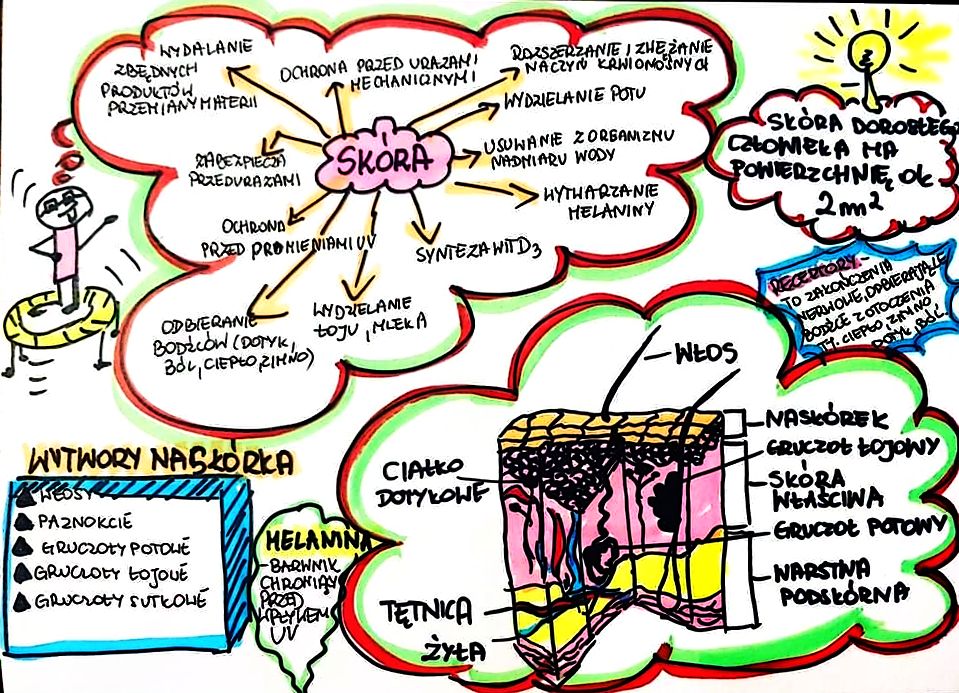 WYDALANIE
ZBĘDNYCH
PRODUKTÓW
PRZEMIANY MATERII
OCHRONA PRZED URAZAMI
MECHANICZNYMI
ROZSZERZANIE I ZWĘŻANIE
NACZYŃ KRWIONOŚNYCH
WYDZIELANIE POTU
USUWANIE Z ORGANIZMU
NADMIARU WODY
WYTWARZANIE
MELANINY
SYNTEZA WIT D3
WYDZIELANIE
ŁOJU, MLEKA
ODBIERANIE
BODŹCÓW (DOTYK,
BÓL, CIEPŁO, ZIMNO)
OCHRONA
PRZED PROMIENIAMI UV
ZABEZPIECZA
PRZED URAZAMI
SKÓRA
SKÓRA DOROSŁEGO
CZŁOWIEKA MA
POWIERZCHNIĘ OK
2m²
RECEPTORY-
TO ZAKOŃCZENIA
NERWOWE, ODBIERAJĄCE
BODŹCE Z OTOCZENIA
TJ. CIEPŁO, ZIMNO,
DOTYK, BÓL.
WYTWORY NASKÓRKA
WŁOSY
PAZNOKCIE
GRUCZOŁY POTOWE
GRUCZOŁY ŁOJOWE
GRUCZOŁY SUTKOWE
MELANINA
- BARWNIK
CHRONIĄCY
PRZED
WPŁYWEM
UV
WŁOS
NASKÓREK
GRUCZOŁ ŁOJOWY
SKÓRA
WŁAŚCIWA
GRUCZOŁ POTOWY
WARSTWA
PODSKÓRNA
CIAŁKO
DOTYKOWE
TĘTNICA
ŻYŁA